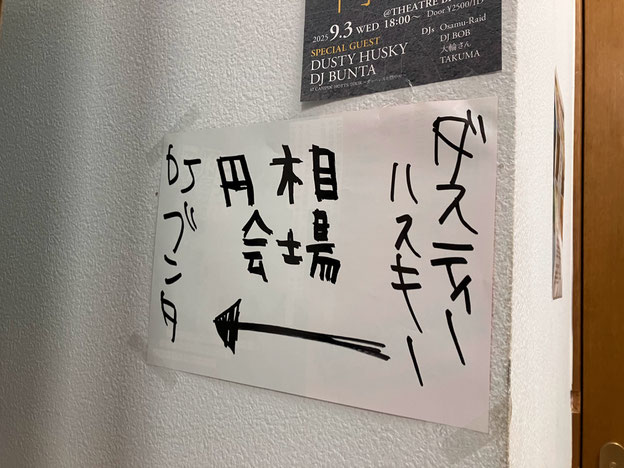 @THEATRE
2025 9.3 WED 18:00~ Door ¥2500/1D
SPECIAL GUEST
DUSTY HUSKY
DJ BUNTA
DJs Osamu-Raid
DJ BOB
大輪さん
TAKUMA
ダスティー
ハスキー
円相
会場
DJブンタ